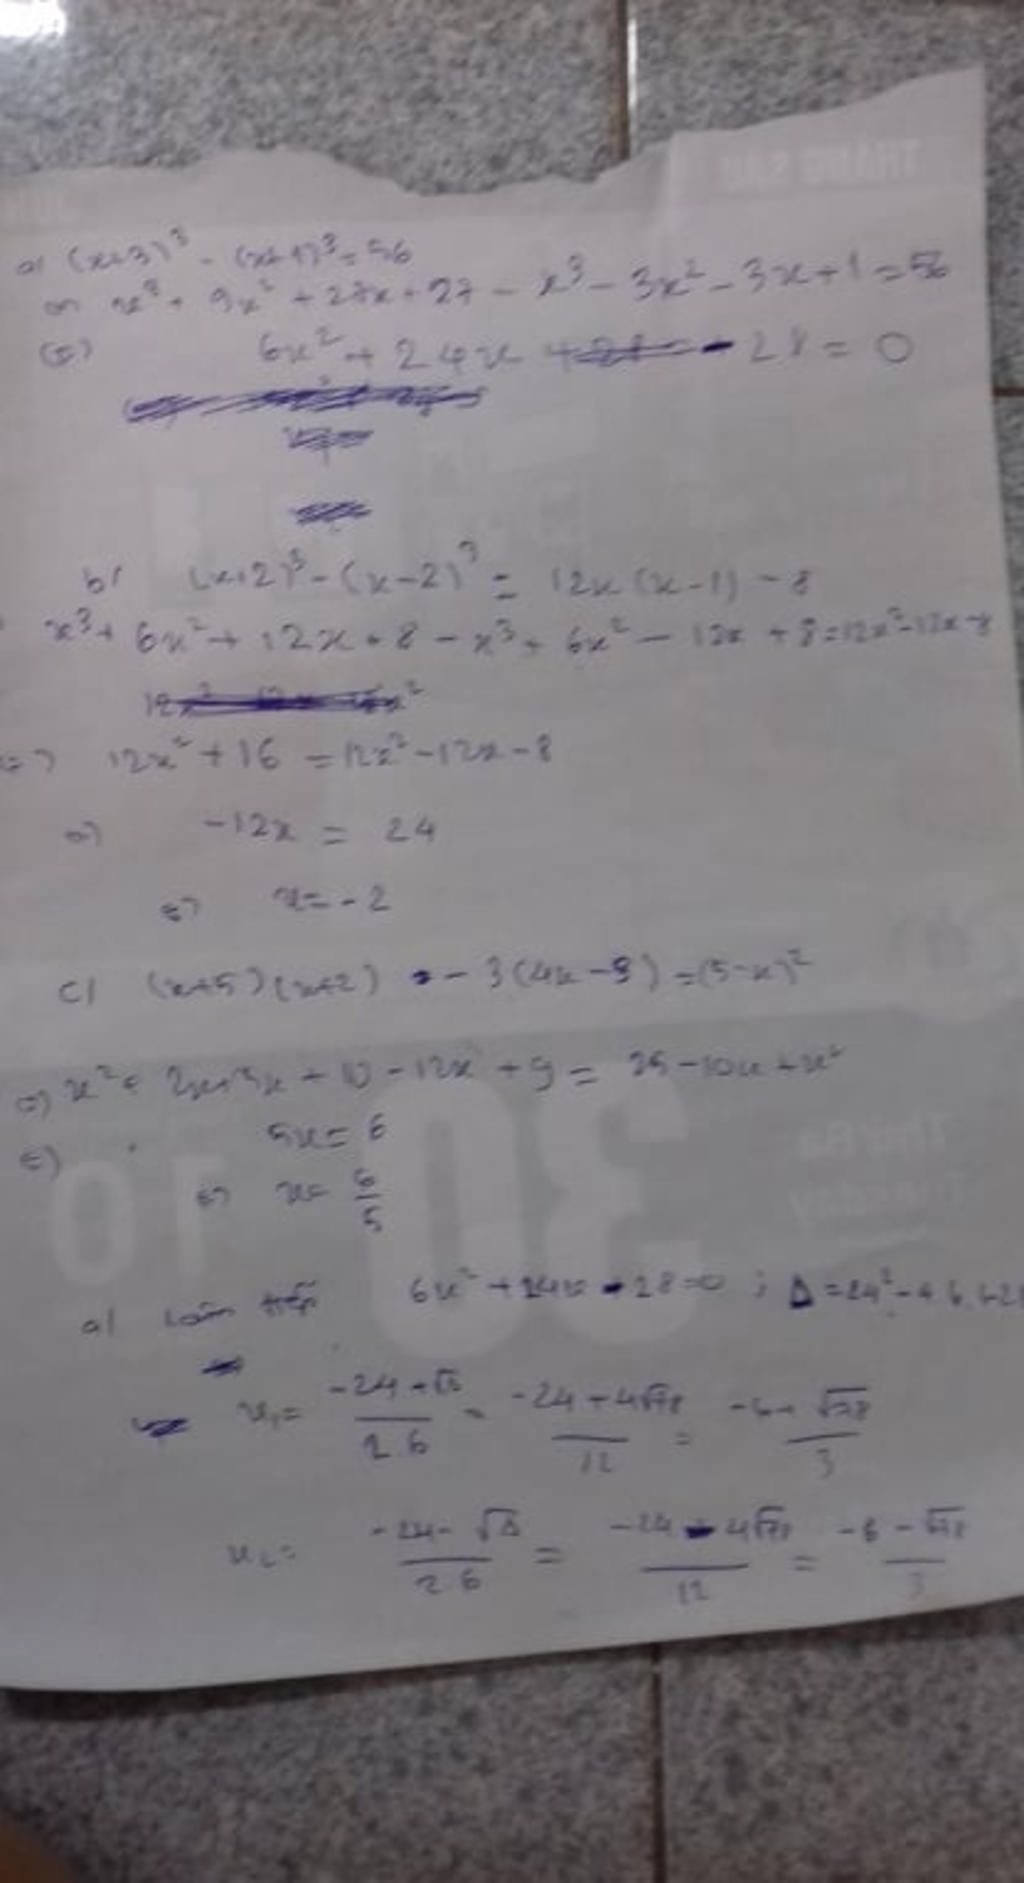 a) (x+3)³ - (x+1)³ = 56
<=> x³ + 9x² + 27x + 27 - x³ - 3x² - 3x + 1 = 56
<=> 6x² + 24x - 28 = 0
b) (x+2)³ - (x-2)³ = 12x(x-1) - 8
x³ + 6x² + 12x + 8 - x³ + 6x² - 12x + 8 = 12x² - 12x - 8
<=> 12x² + 16 = 12x² - 12x - 8
<=> -12x = 24
<=> x = -2
c) (x+5)(x+2) - 3(4x-3) = (5-x)²
=> x² + 2x + 5x + 10 - 12x + 9 = 25 - 10x + x²
<=> 5x = 6
<=> x = 6/5
a) Làm tiếp 6x² + 24x - 28 = 0 ; Δ = 24² - 4.6.
x₁ = (-24 + √Δ)/2.6 = (-24 + 4√78)/12 = (-6 + √78)/3
x₂ = (-24 - √Δ)/2.6 = (-24 - 4√78)/12 = (-6 - √78)/3
THÁNG SÁU
Thứ Ba
Tuesday
30
10